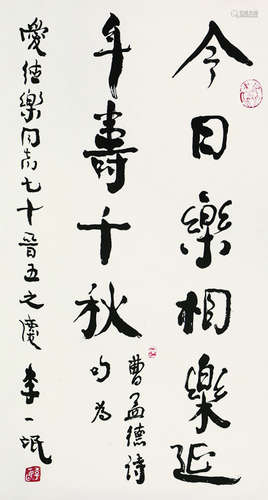 今日樂相樂延
年壽千秋
曹孟德詩
句為
愛德樂同志七十晋五之慶 李一氓